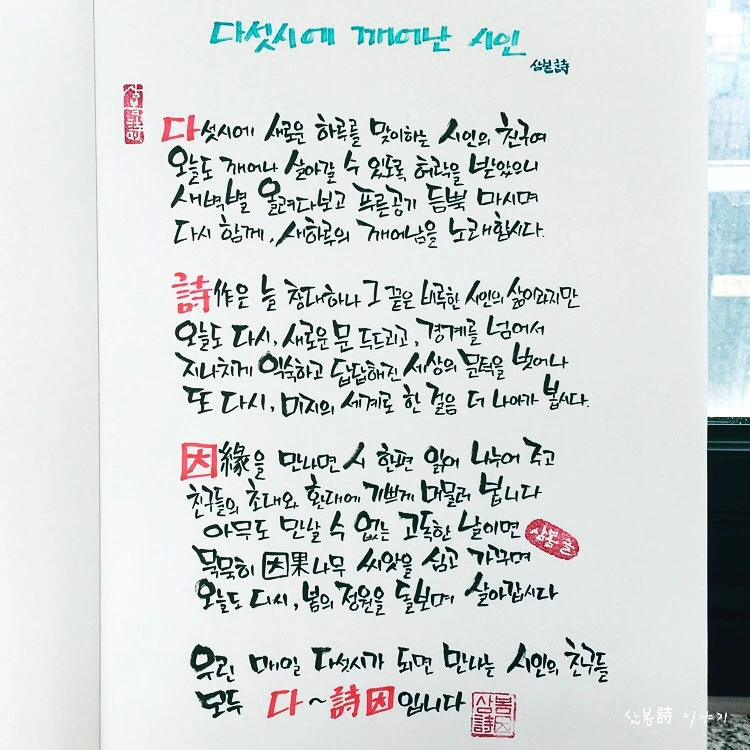 다섯시에 깨어난 시인
삼봄詩
삼봄詩
다섯시에 새로운 하루를 맞이하는 시인의 친구여
오늘도 깨어나 살아갈 수 있도록 허락을 받았으니
새벽별 올려다보고 푸른공기 듬뿍 마시며
다시 함께, 새하루의 깨어남을 노래합시다.
詩作은 늘 창대하나 그 끝은 비루한 시인의 삶이라지만
오늘도 다시, 새로운 문 두드리고, 경계를 넘어서
지나치게 익숙하고 답답해진 세상의 문턱을 벗어나
또 다시, 미지의 세계로 한 걸음 더 나아가 봅시다.
因緣을 만나면 시 한편 읽어 나누어 주고
친구들의 초대와 환대에 기쁘게 머물러 봅니다
아무도 만날 수 없는 고독한 날이면
삼봄글
묵묵히 因果나무 씨앗을 심고 가꾸며
오늘도 다시, 봄의 정원을 돌보며 살아갑시다
우린 매일 다섯시가 되면 만나는 시인의 친구들
모두 다~詩因입니다
삼봄詩因
삼봄詩 이야기